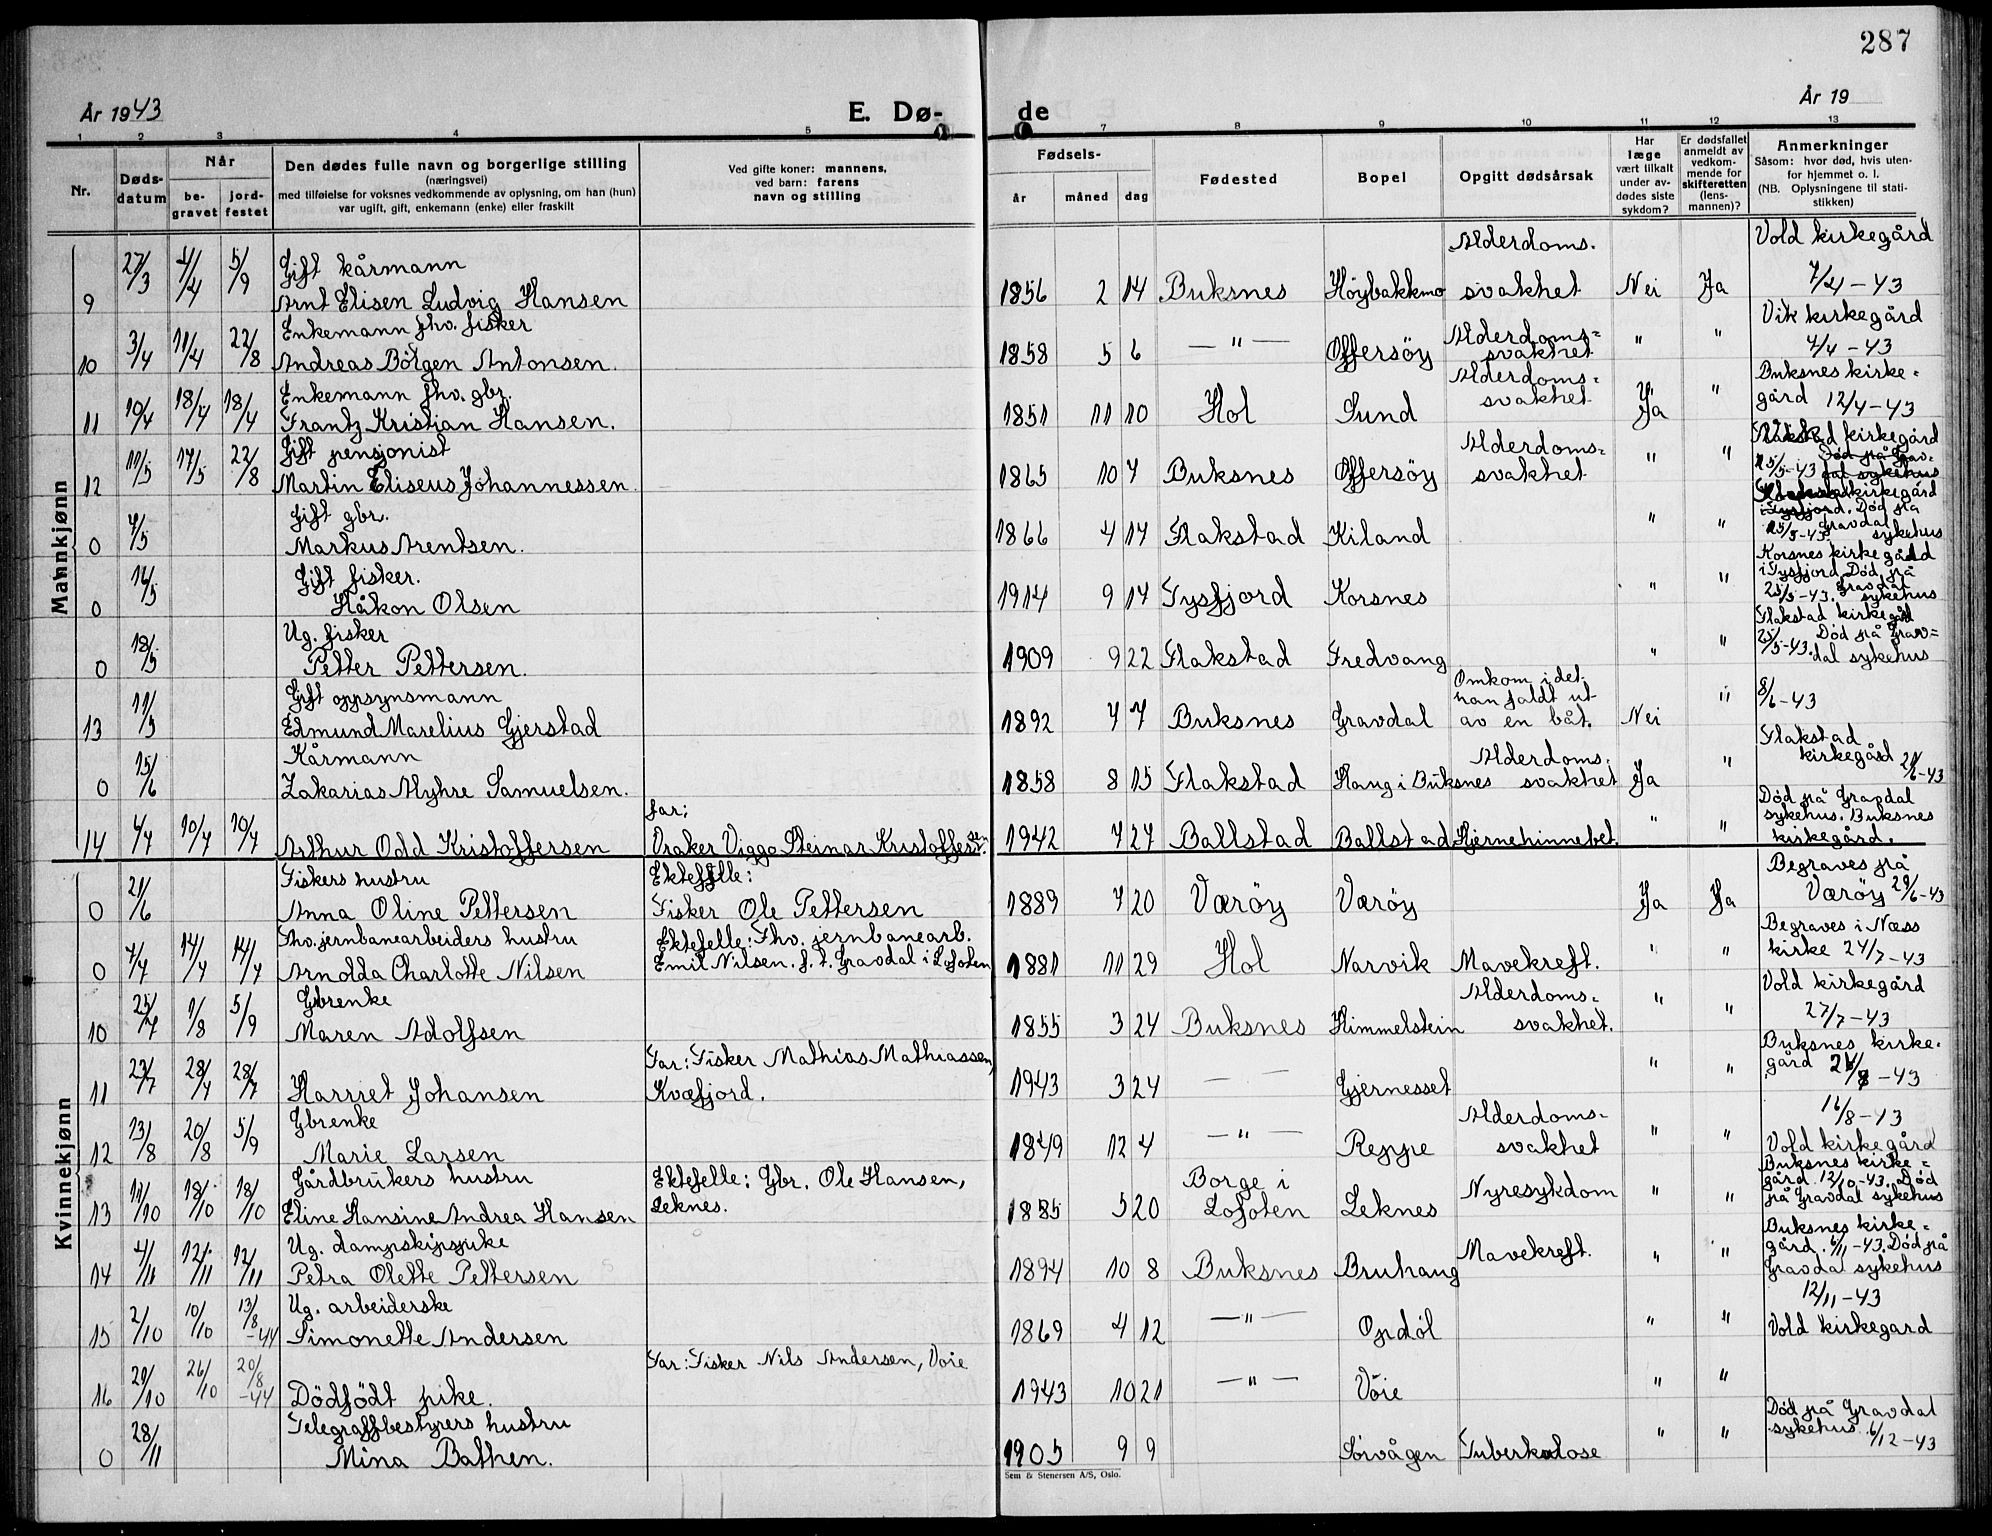 287
År 1943
E. Dø-
de
År 19
1 2 3 4 5 7 8 9 10 11 12 13
Nr.
Døds-
datum
Når
be-
gravet
jord-
festet
Den dødes fulle navn og borgerlige stilling
(næringsvei)
med tilføielse for voksnes vedkommende av oplysning, om han (hun)
var ugift, gift, enkemann (enke) eller fraskilt
Ved gifte koner: mannens,
ved barn: farens
navn og stilling
Fødsels-
år måned dag
Fødested
Bopel
Opgitt dødsårsak
Har
læge
vært tilkalt
under av-
dødes siste
sykdom?
Er dødsfallet
anmeldt av
vedkom-
mende for
skifteretten
(lens-
mannen)?
Anmerkninger
Såsom: hvor død, hvis uten-
for hjemmet o. l.
(NB. Oplysningene til stati-
stikken)
Mannkjønn
27/3 4/4 5/9 Gift kårmann Alderdoms. Vold kirkegård
9 Arnt Elisen Ludvig Hansen 1856 2 14 Buksnes Höybakkmo svakhet Nei Ja 7/4-43
3/4 11/4 22/8 Enkemann fhv. fisker Alderdoms= Vik kirkegård
10 Andreas Bölgen Antonsen. 1858 5 6 -"- Offersöy svakhet " " 7/4-43
10/4 18/4 18/4 Enkemann fhv. gbr. Alderdoms= Buksnes kirke=
11 Frantz Kristian Hansen. 1851 11 10 Hol Sund svakhet Ja " gård 12/4-43
11/5 17/5 22/8 Gift pensjonist Alderdoms= kirkegård
12 Martin Eliseus Johannessen. 1865 10 7 Buksnes Offersöy svakhet " " 15/5-43 Död på Grav=
dal sykehus
7/5 Gift gbr. kirkegård
i Tysfjord. Död på
0 Markus Arentsen. 1866 4 14 Flakstad Kiland " " Gravdal
sykehus
16/5 Gift fisker. Korsnes kirkegård
i Tysfjord Död på
0 Håkon Olsen 1914 9 14 Tysfjord Korsnes " " 25/5-43. Gravdal
sykehus
18/5 Ug. fisker Flakstad kirkegård
0 Petter Pettersen. 1909 9 22 Flakstad Fredvang " " 25/5-43. Död på Grav=
dal sykehus
11/5 Gift oppsynsmann Omkom i det
han faldt ut
13 Edmund Marelius Gjerstad 1892 7 7 Buksnes Gravdal av en båt. Nei " 8/6-43
15/6 Kårmann Alderdoms. Flakstad
0 Zakarias Myhre Samuelsen. 1858 8 15 Flakstad Haug i Buksnes svakhet Ja " kirkegård 21/6-43
far: Död på Gravdal
sykehus. Buksnes
14 4/7 10/7 10/7 Arthur Odd Kristoffersen Vraker Viggo Steinar Kristoffersen. 1942 7 27 Ballstad Ballstad Hjernehinnebet. " " kirkegård.
Kvinnekjønn
21/6 Fiskers hustru Ektefelle: Begraves på
0 Anna Oline Pettersen Fisker Ole Pettersen 1889 7 20 Væröy Væröy Ja Ja Væröy 29/6-43
7/7 14/7 14/7 Fhv. jernbanearbeiders hustru Ektefelle: Fhv. jernbanearb. Begraves i Næss
0 Arnolda Charlotte Nilsen Emil Nilsen. f. t. Gravdal i Lofoten 1881 11 29 Hol Narvik Mavekreft. " " kirke 24/7-43
25/7 1/8 5/9 Gbrenke Alderdoms= Vold kirkegård
10 Maren Adolfsen 1855 3 24 Buksnes Himmelstein svakhet. " " 27/7-43
Far: Fisker Mathias Mathiassen, Buksnes kirke.
11 23/7 28/7 28/7 Harriet Johansen Kvæfjord. 1943 3 24 - - Gjernesset " " gård -43
13/8 20/8 5/9 Gbrenke Alderdoms= 16/8-43
12 Marie Larsen 1849 12 4 -"- Reppe svakhet " " Vold kirkegård
11/10 18/10 18/10 Gårdbrukers hustru Ektefelle: Gbr. Ole Hansen, Borge i Buksnes kirke=
gård 12/10-43. Död
13 Eline Hansine Andrea Hansen Leknes. 1885 5 20 Lofoten Leknes Nyresykdom " " på Gravdal sykehus
4/11 12/11 12/11 Ug. dampskipspike Buksnes kirke=
gård. 6/11-43. Död på
14 Petra Olette Pettersen 1894 10 8 Buksnes Bruhaug Mavekreft. " " Gravdal sykehus
2/10 10/10 13/8-44 Ug. arbeiderske 12/11-43
15 Simonette Andersen 1869 4 12 -"- Opdöl " " Vold kirkegard
Far: Fisker Nils Andersen, Voie
16 21/10 26/10 20/8-44 Dödfödt pike. 1943 10 21 -"- Voie " "
28/11 Telegrafbestyrers hustru Död på Gravdal
0 Mina Bathen. 1905 9 9 Sörvågen Tuberkulose " " sykehus 6/12-43
Sem & Stenersen A/S, Oslo.